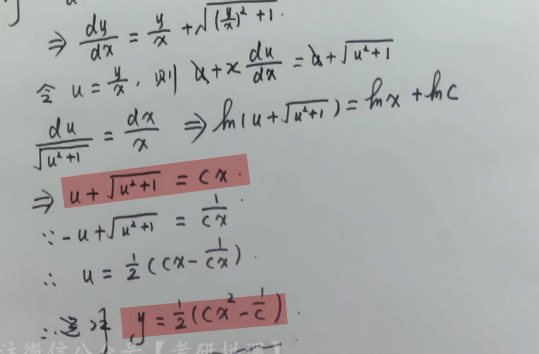 ⇒ dy/dx = y/x + √((y/x)² + 1).
令 u = y/x, 则 u + x du/dx = u + √(u²+1)
du/√(u²+1) = dx/x ⇒ ln(u + √(u²+1)) = ln x + ln c
⇒ u + √(u²+1) = cx.
∵ -u + √(u²+1) = 1/cx
∴ u = 1/2 (cx - 1/cx).
∴ 选 y = 1/2 (cx² - 1/c).
注微信公众号【考研